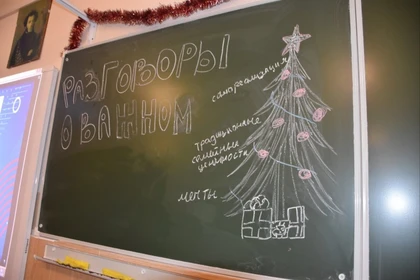 РАЗГОВОРЫ
О ВАЖНОМ
самореализация
традиционные
семейные
ценности
мечты